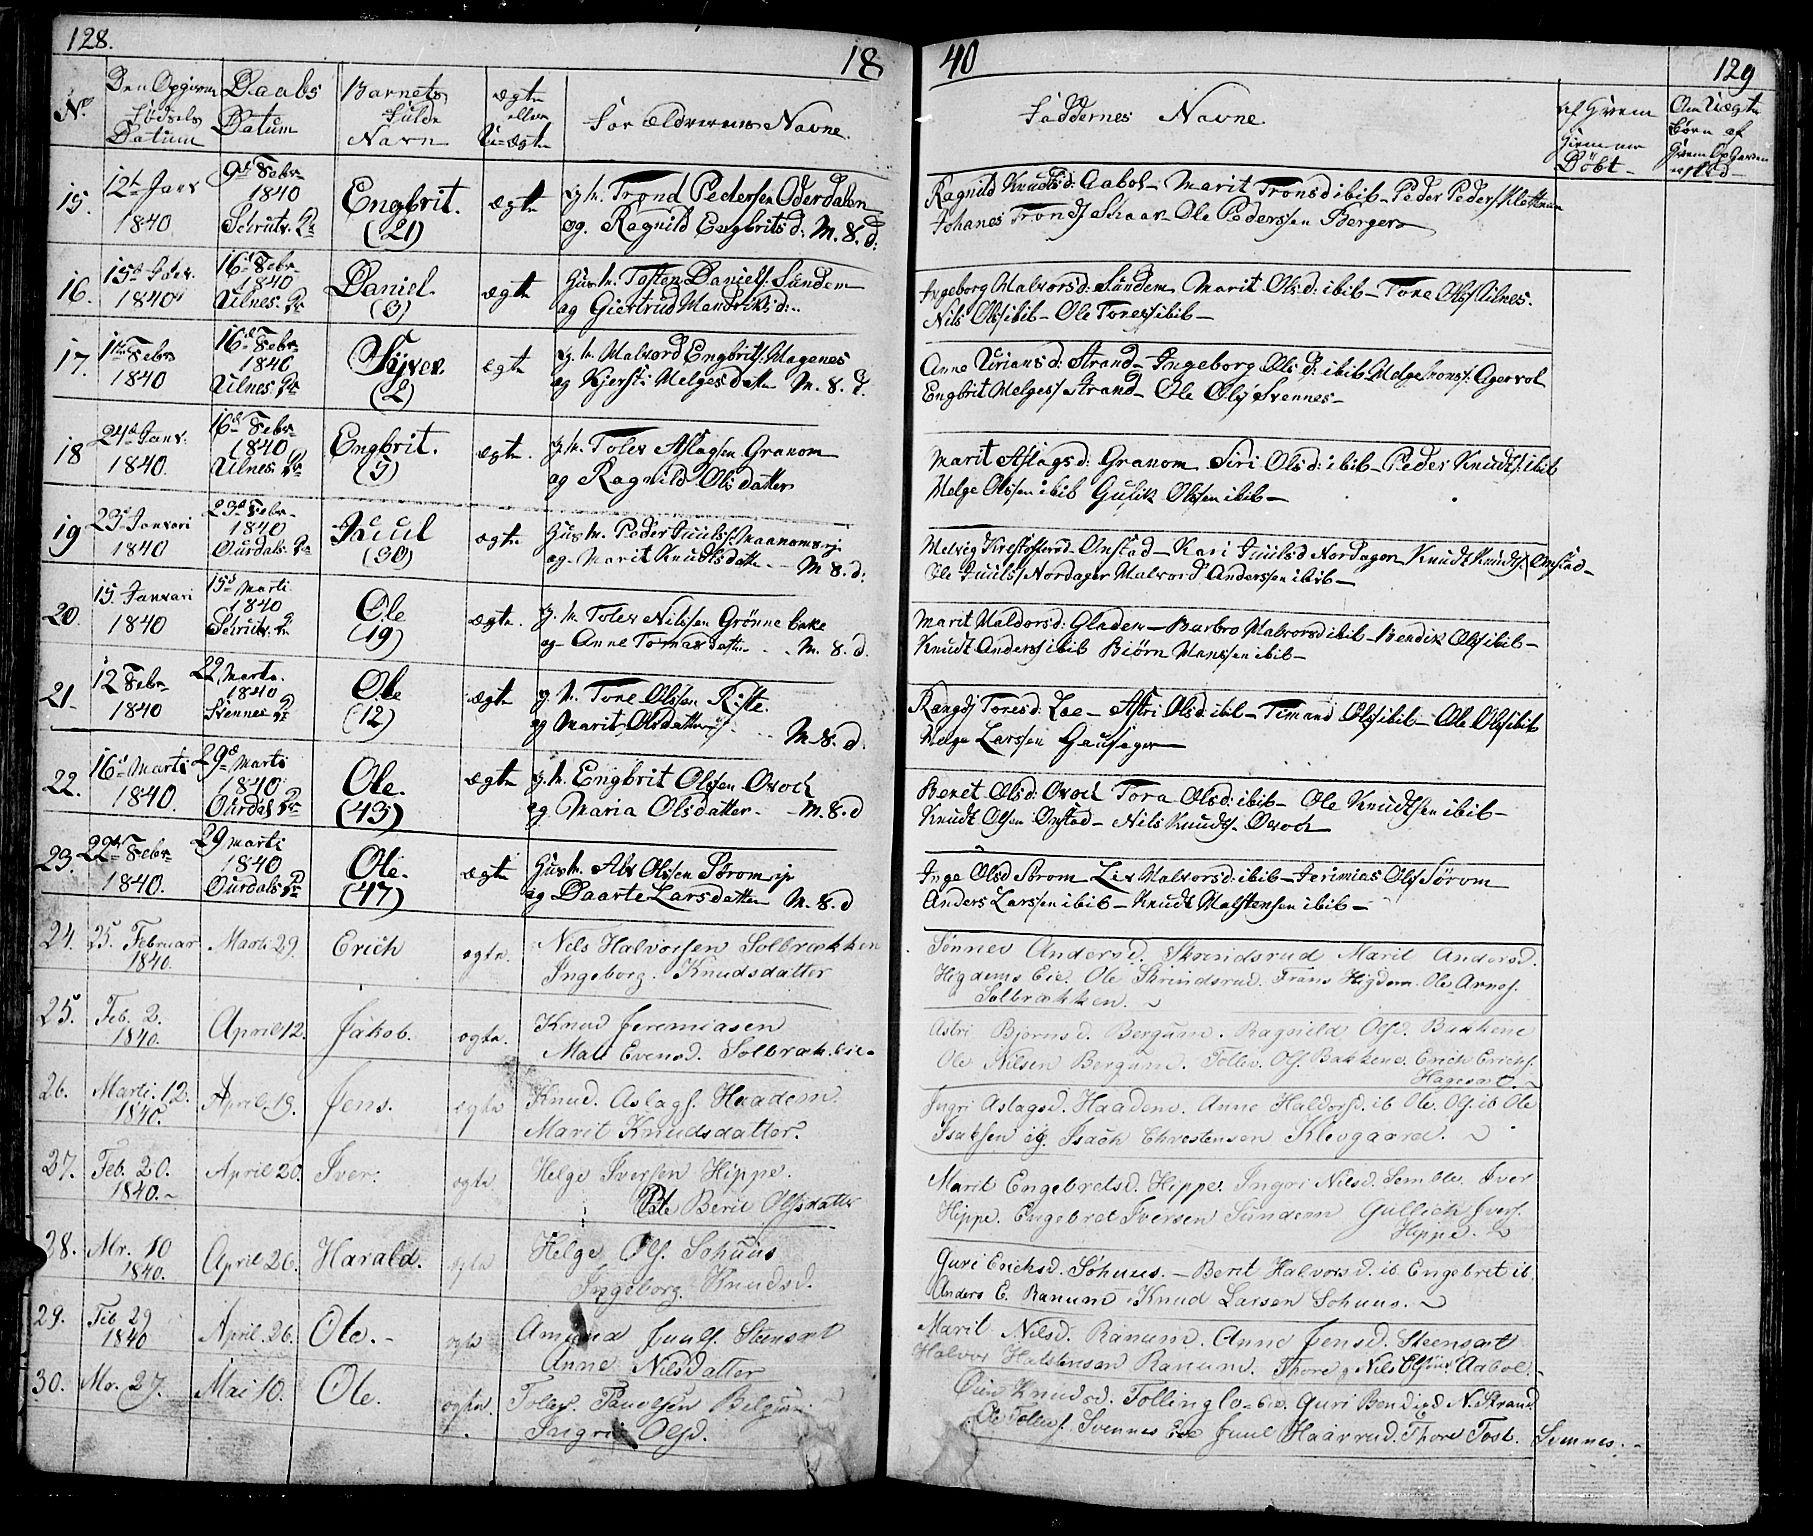 128.
18
40
129
No
Den Opgivne Fødsels Datum
Daabs Datum
Barnets fulde Navn
ægte eller U-ægte
Forældrenes Navne.
Faddernes Navne
af Hvem
Giemme
Döbt -
Om Uægte
Børn af
Hvem
15.
12te Janr
1840
9de Febr
1840
Schrutv. Kr
Engbrit.
(21)
ægte
g. k. Trond Pedersen Oderdalen
og. Ragnild Engbritsd: M. 8. d:
Ragnild Knudtsd: Aabol - Marit Tronsd ibib - Peder Peders/
Johanes Tronds/ Skaar - Ole Pederssen Berger
16.
15de Febr.
1840
16de Febr
1840
Ulnes. Kr
Daniel.
(3)
ægte
Huusm. Tosten Daniels/. Sundem
og Giertrud Hendriksd:
Ingeborg Halvorsd: Sundem Marit Olsd: ibib - Tore Ols/ Ulnes.
Nils Ols/ ibib - Ole Tores/ ibib -
17.
1te Febr
1840
16de Febr
1840
Ulnes Kr
(2)
ægte
g. k. Halvord Engbrits/. Hagenes
og Kjersti Helgesdatte M. 8. d.
Anne Uriansd: Strand - Ingeborg Olsd: ibib - Helge Agervol
Engbrit Helges/ Strand - Ole Ols/ Svennes -
18
24de Janr.
1840.
16de Febr
1840
Ulnes Kr
Engbrit.
ægte.
g. k. Tolev Aslagsen Granom
og Ragnild Olsdatter
Marit Aslagsd: Granom Siri Olsd: ibib - Peder Knudts/: ibib
Helge Olssen ibib Gulik Olssen ibib -
19
23de Januari
1840
23de Febr
1840
Ourdals. Kr
Juul
(30)
ægte
Huusm. Peder Juuls/.
og - Marit Knudtsdatte - - M. 8. d:
Helvig Onstad - Kari Juulsd Nordager Knudt Knudts/. Onstad -
Ole Juuls/ Nordager Halvord Anderssen ibib -
20
15. Januari
1840
15de Marti
1840
Schrutv. Kr
Ole
(19)
ægte.
g. k. Tolev Nilssen Grönnebake
og - Anne Tomasdatte - . . M. 8. d.
Marit Haldorsd: Gladen - Barbro Halvorsd ibib - Bendik Ols/ ibib -
Knudt Anders/ ibib Biörn Hanssen ibib -
21
12 Febr
1840
22. Marti.
1840
Svennes Kr
Ole
(12)
ægte
g. k. Tore Olssen Riste.
og Marit Olsdatter . . . M. 8. d.
Rangdj Toresd. Loe - Astri Olsd. ibib - Timand Ols/ ibib - Ole Ols/ ibib
Helge Larssen Gausager
22.
16de Marti
1840.
29de Marti
1840
Ourdal Kr
Ole.
(43)
ægte
g. k. Engbrit Olssen
og Maria Olsdatter - M. 8. d
Beret Olsd: Tora Olsd: ibib - Ole Knudtsen ibib -
Knudt Olsen Onstad - Nils Knudts -
23.
22de Febr
1840.
29 Marti
1840
Ourdals Kr
Ole.
(47)
ægte
Huusm. Abr Olssen
og Daarte Larsdatte M. 8. d
Inge Olsd Strom Liv Halvorsd: ibib - Jerimias Ols/
Anders Larssen ibib - Knudt Halstensen ibib -
24.
25. Februar
1840.
Marti 29.
Erich
egte.
Nils Halvorsen Solbrækken
Ingeborg. Knudsdatter
Sönnev Andersd. Skrindsrud Marit Andersd.
Higdems Eie. Ole Skrindsrud. Frans Higdem. Ole Arnes/.
Solbrækken.
25.
Feb. 2.
1840.
April 12.
Jakob.
egte.
Knud Jeremiasen
Mali Evensd. Solbræk. Eie.
Astri Björnsd. Bergum. Ragnild Olsd. Bakkene
Ole Nilsen Bergum. Tollev. Ols. Bakkene. Erich Erichs.
26.
Marti. 12.
1840.
April. 19.
Jens.
egte
Knud. Aslags. Haadem.
Marit Knudsdatter.
Ingri Aslagsd. Haadem. Anne Haldorsd. ib Ole. Ols. ib Ole
Isaksen og Isach Christensen Klevgaard.
27.
Feb. 20.
1840. -
April 20.
Iver.
egte
Helge Iversen Hippe.
Berit Olsdatter
Marit Engebretsd. Hippe. Ingri Nilsd. Semble. Iver
Hippe. Engebret Iversen Sundem Gullich Ivers.
Hippe.
28.
Mr. 10
1840.
April 26.
Harald.
egte
Helge Ols. Sohuus
Ingeborg Knudsd.
Guri Erichsd. Sohuus. - Berit Halvorsd. ib. Engebrit ib.
Anders E. Ranum Knud Larsen Sohuus.
29.
Feb 29
1840
April. 26.
Ole. -
egte
Amund Juuls. Steensæt
Anne Nilsdatter
Marit Nilsd. Ranum. Anne Jensd. Steensæt
Halvor Halstensen Ranum. Thore g Nils Aabol. -
30.
Mr. 27.
Mai 10.
Ole.
egte.
Tolev. Paulsen Belgum
Ingri Olsd.
Knudsd. Tollinglo - Eie. Guri N. Strand
Ole Tollevs. Svennes Eie Juul Haarrud. Thore Tost. Svennes. -